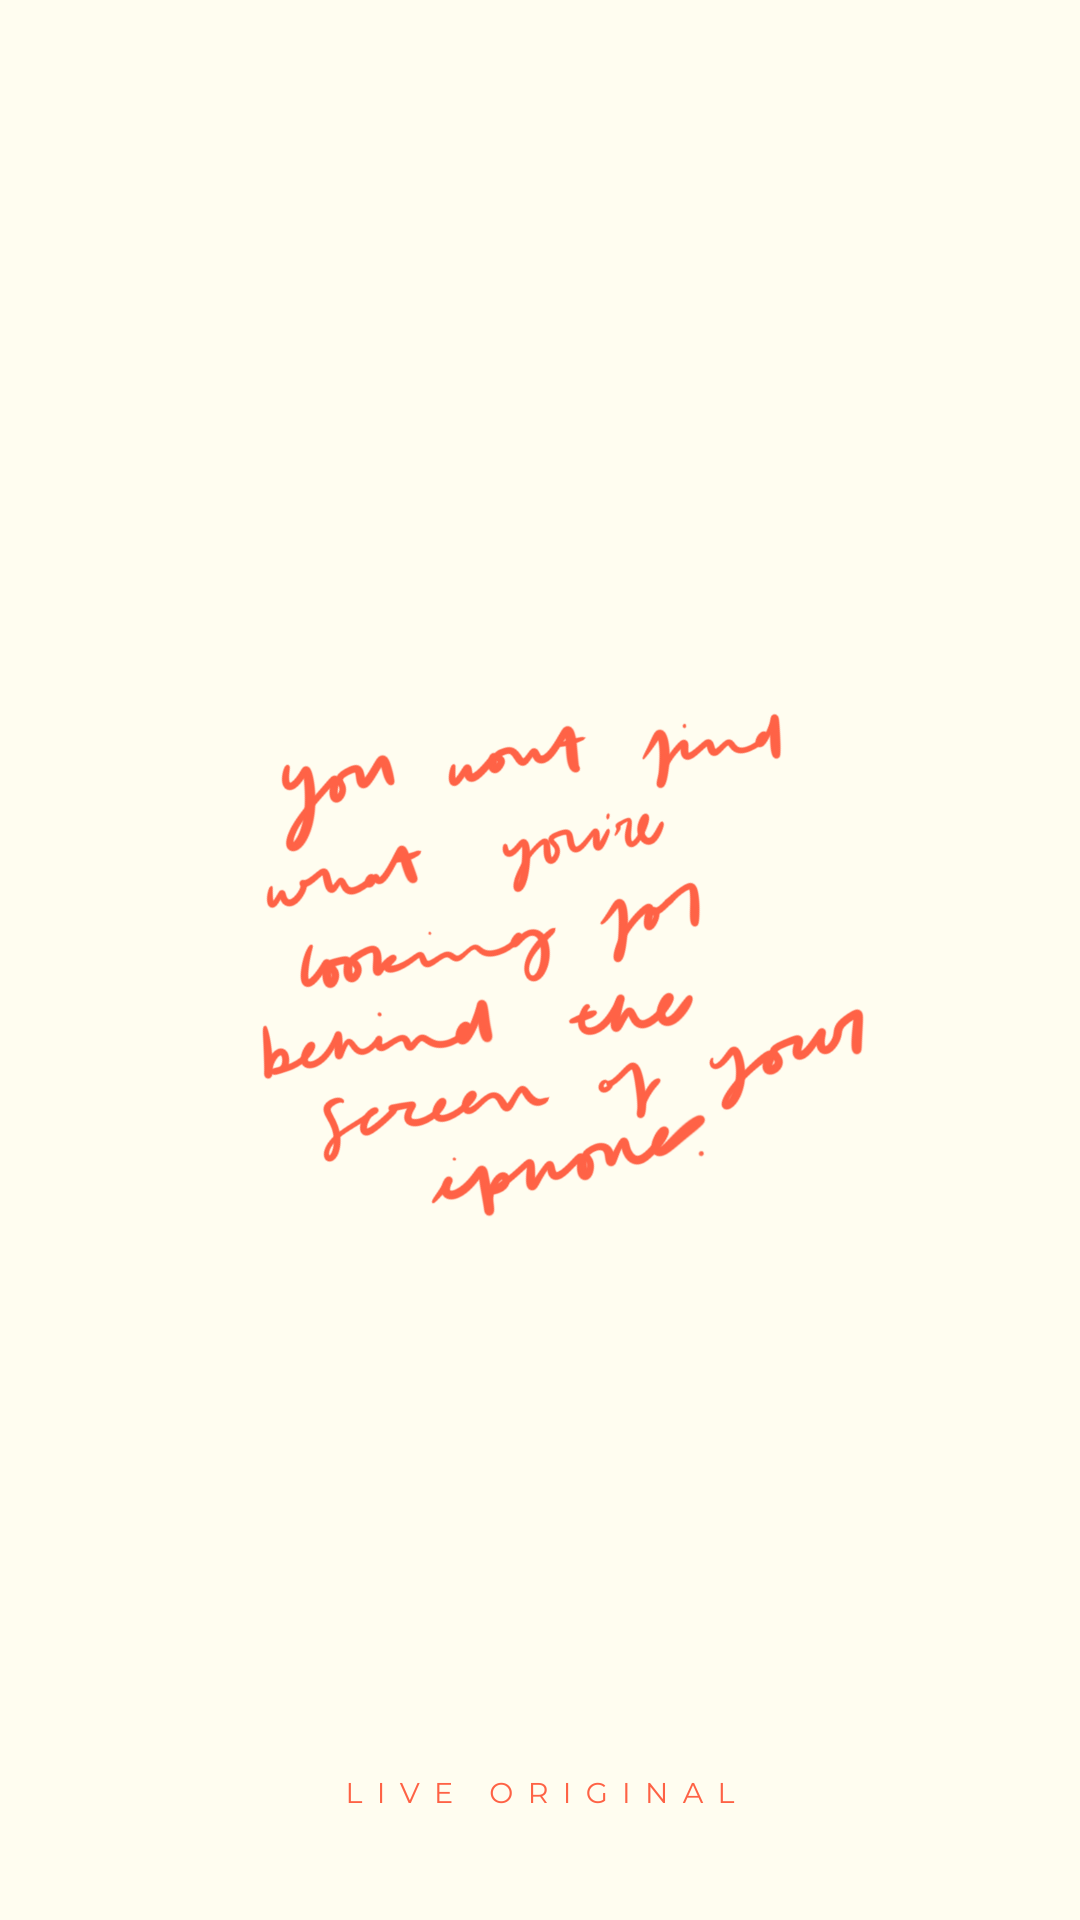 you wont find
what you're
looking for
behind the
screen of your
iphone.
LIVE ORIGINAL